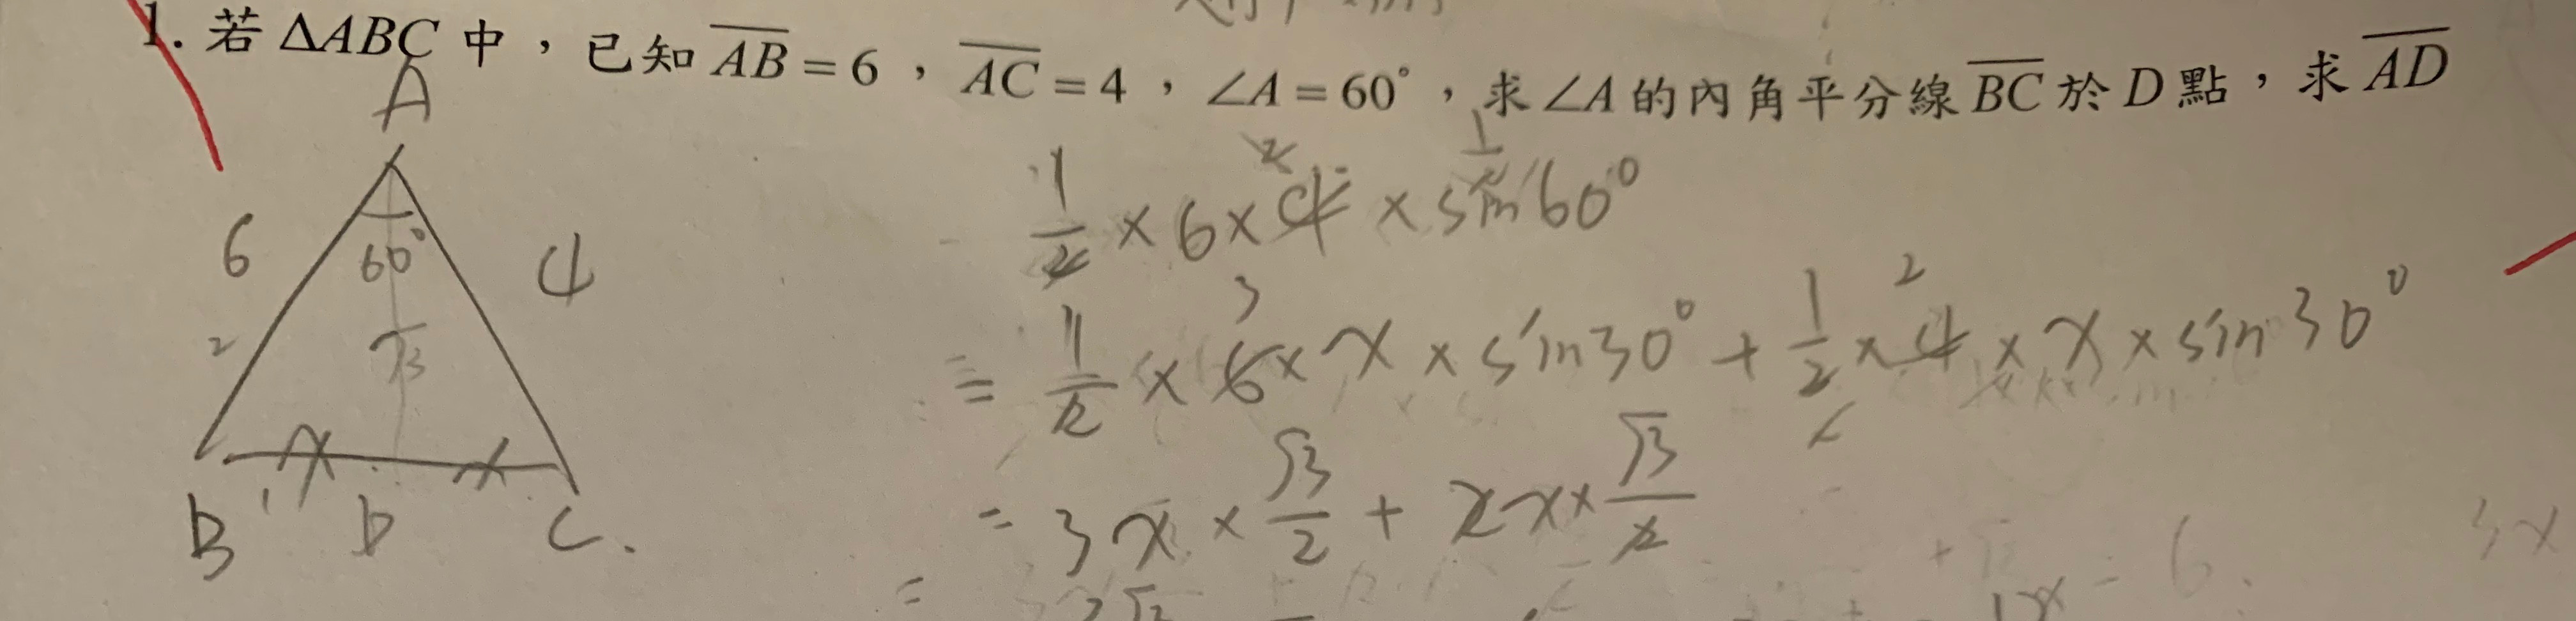 1. 若 ΔABC 中，已知 AB = 6，AC = 4，∠A = 60°，求 ∠A 的內角平分線 BC 於 D 點，求 AD
A
6
60°
4
2
√3
B
1
D
C.
1/2 × 6 × 4 × sin60°
2
1
= 1/2 × 6 × x × sin30° + 1/2 × 4 × x × sin30°
3
2
= 3x × √3/2 + 2x × √3/2
=